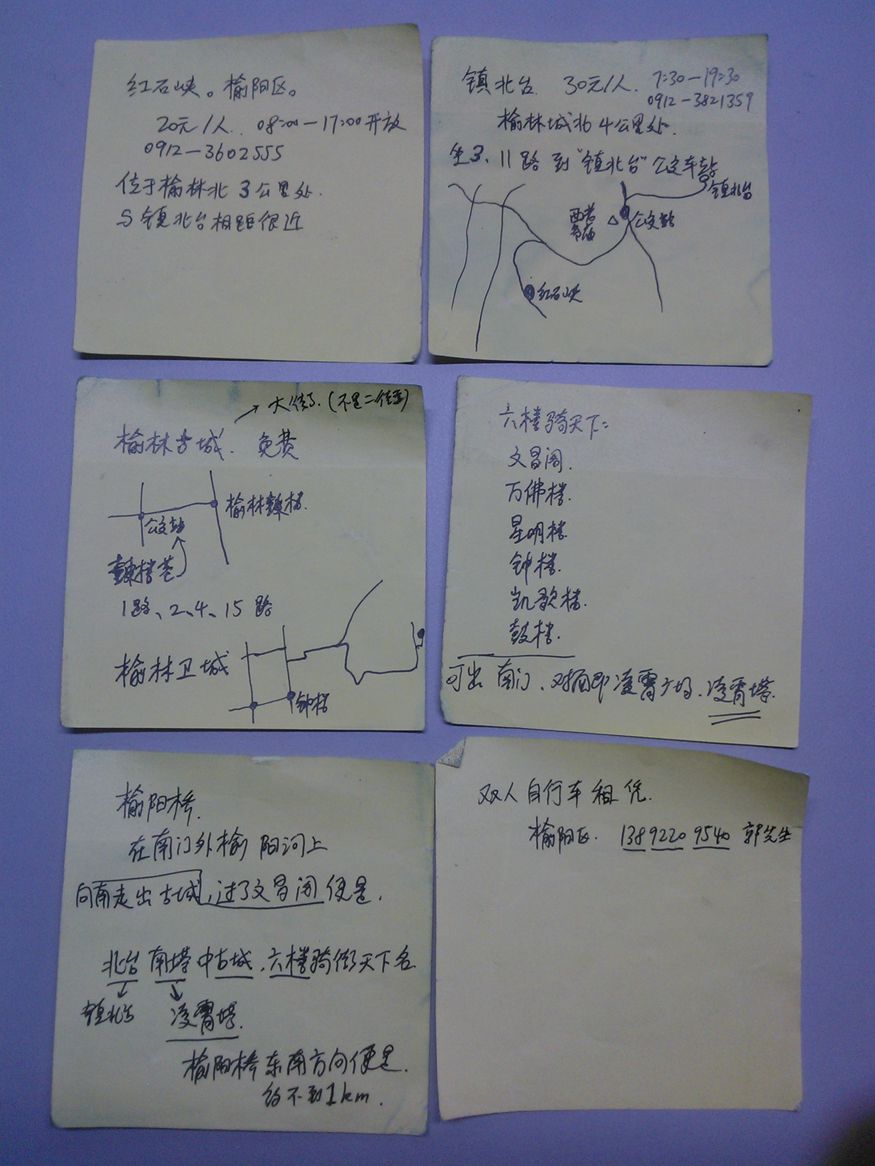 红石峡。榆阳区。
20元/人. 08:00—17:00开放
0912—3602555
位于榆林北3公里处.
与镇北台相距很近
镇北台. 30元/人. 7:30—19:30
0912—3821359
榆林城北4公里处.
坐3、11路到"镇北台"公交车站
镇北台
公交站
红石峡
→大街. (不是二街)
榆林古城. 免费
榆林鼓楼.
公交站
鼓楼巷
1路、2、4、15路
榆林卫城
钟楼
六楼骑天下:
文昌阁.
万佛楼.
星明楼.
钟楼.
凯歌楼.
鼓楼.
可出南门、对面即凌霄广场、凌霄塔.
榆阳桥.
在南门外榆阳河上
向南走出古城,过了文昌阁便是.
北台南塔中古城、六楼骑街天下名
镇北台
凌霄塔.
榆阳桥东南方向便是.
约不到1km.
双人自行车租凭.
榆阳区. 1389220 9540 郭先生